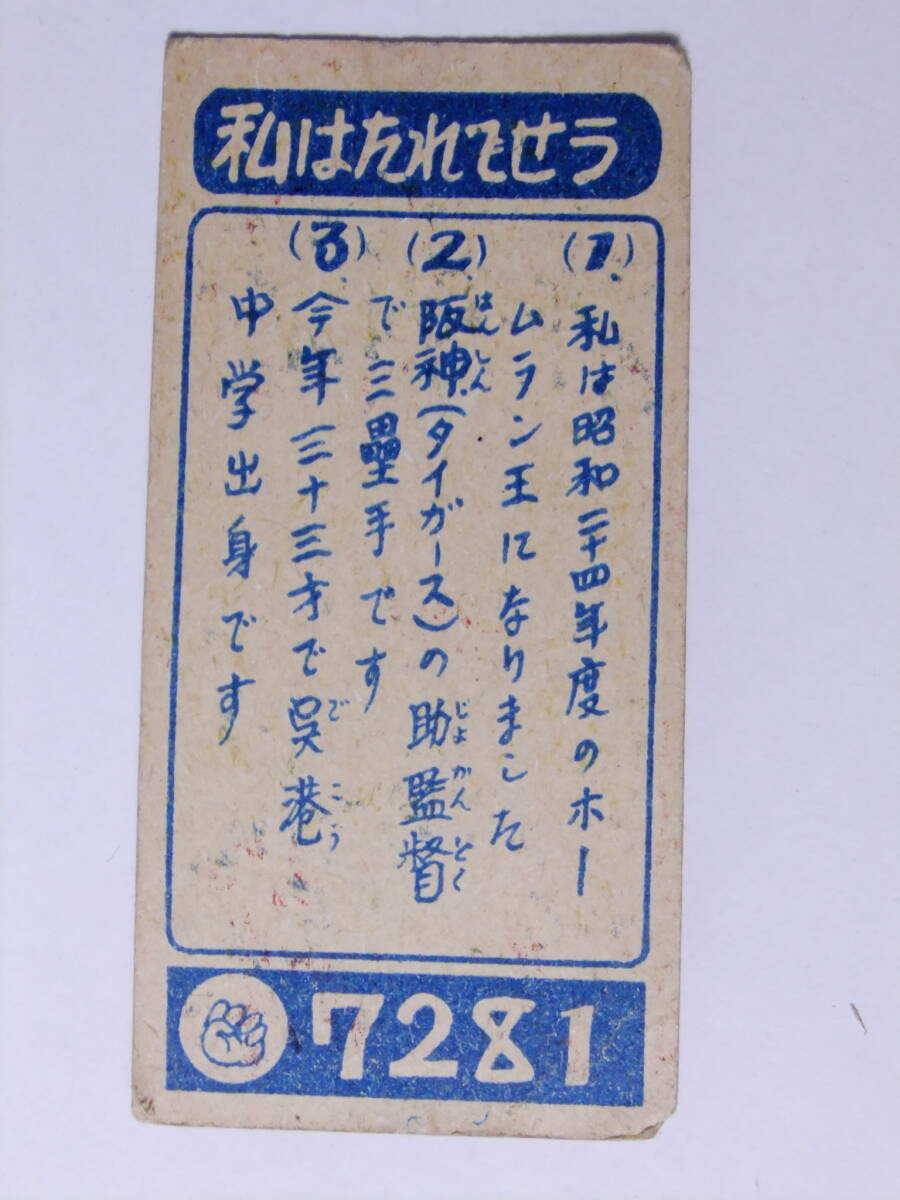 私はたれでせう
(1).私は昭和二十四年度のホー
ムラン王になりました
(2).阪神(タイガース)の助監督
はんしん
じよかんとく
で三壘手です
(3).今年三十三才で呉港
ごこう
中学出身です
7281